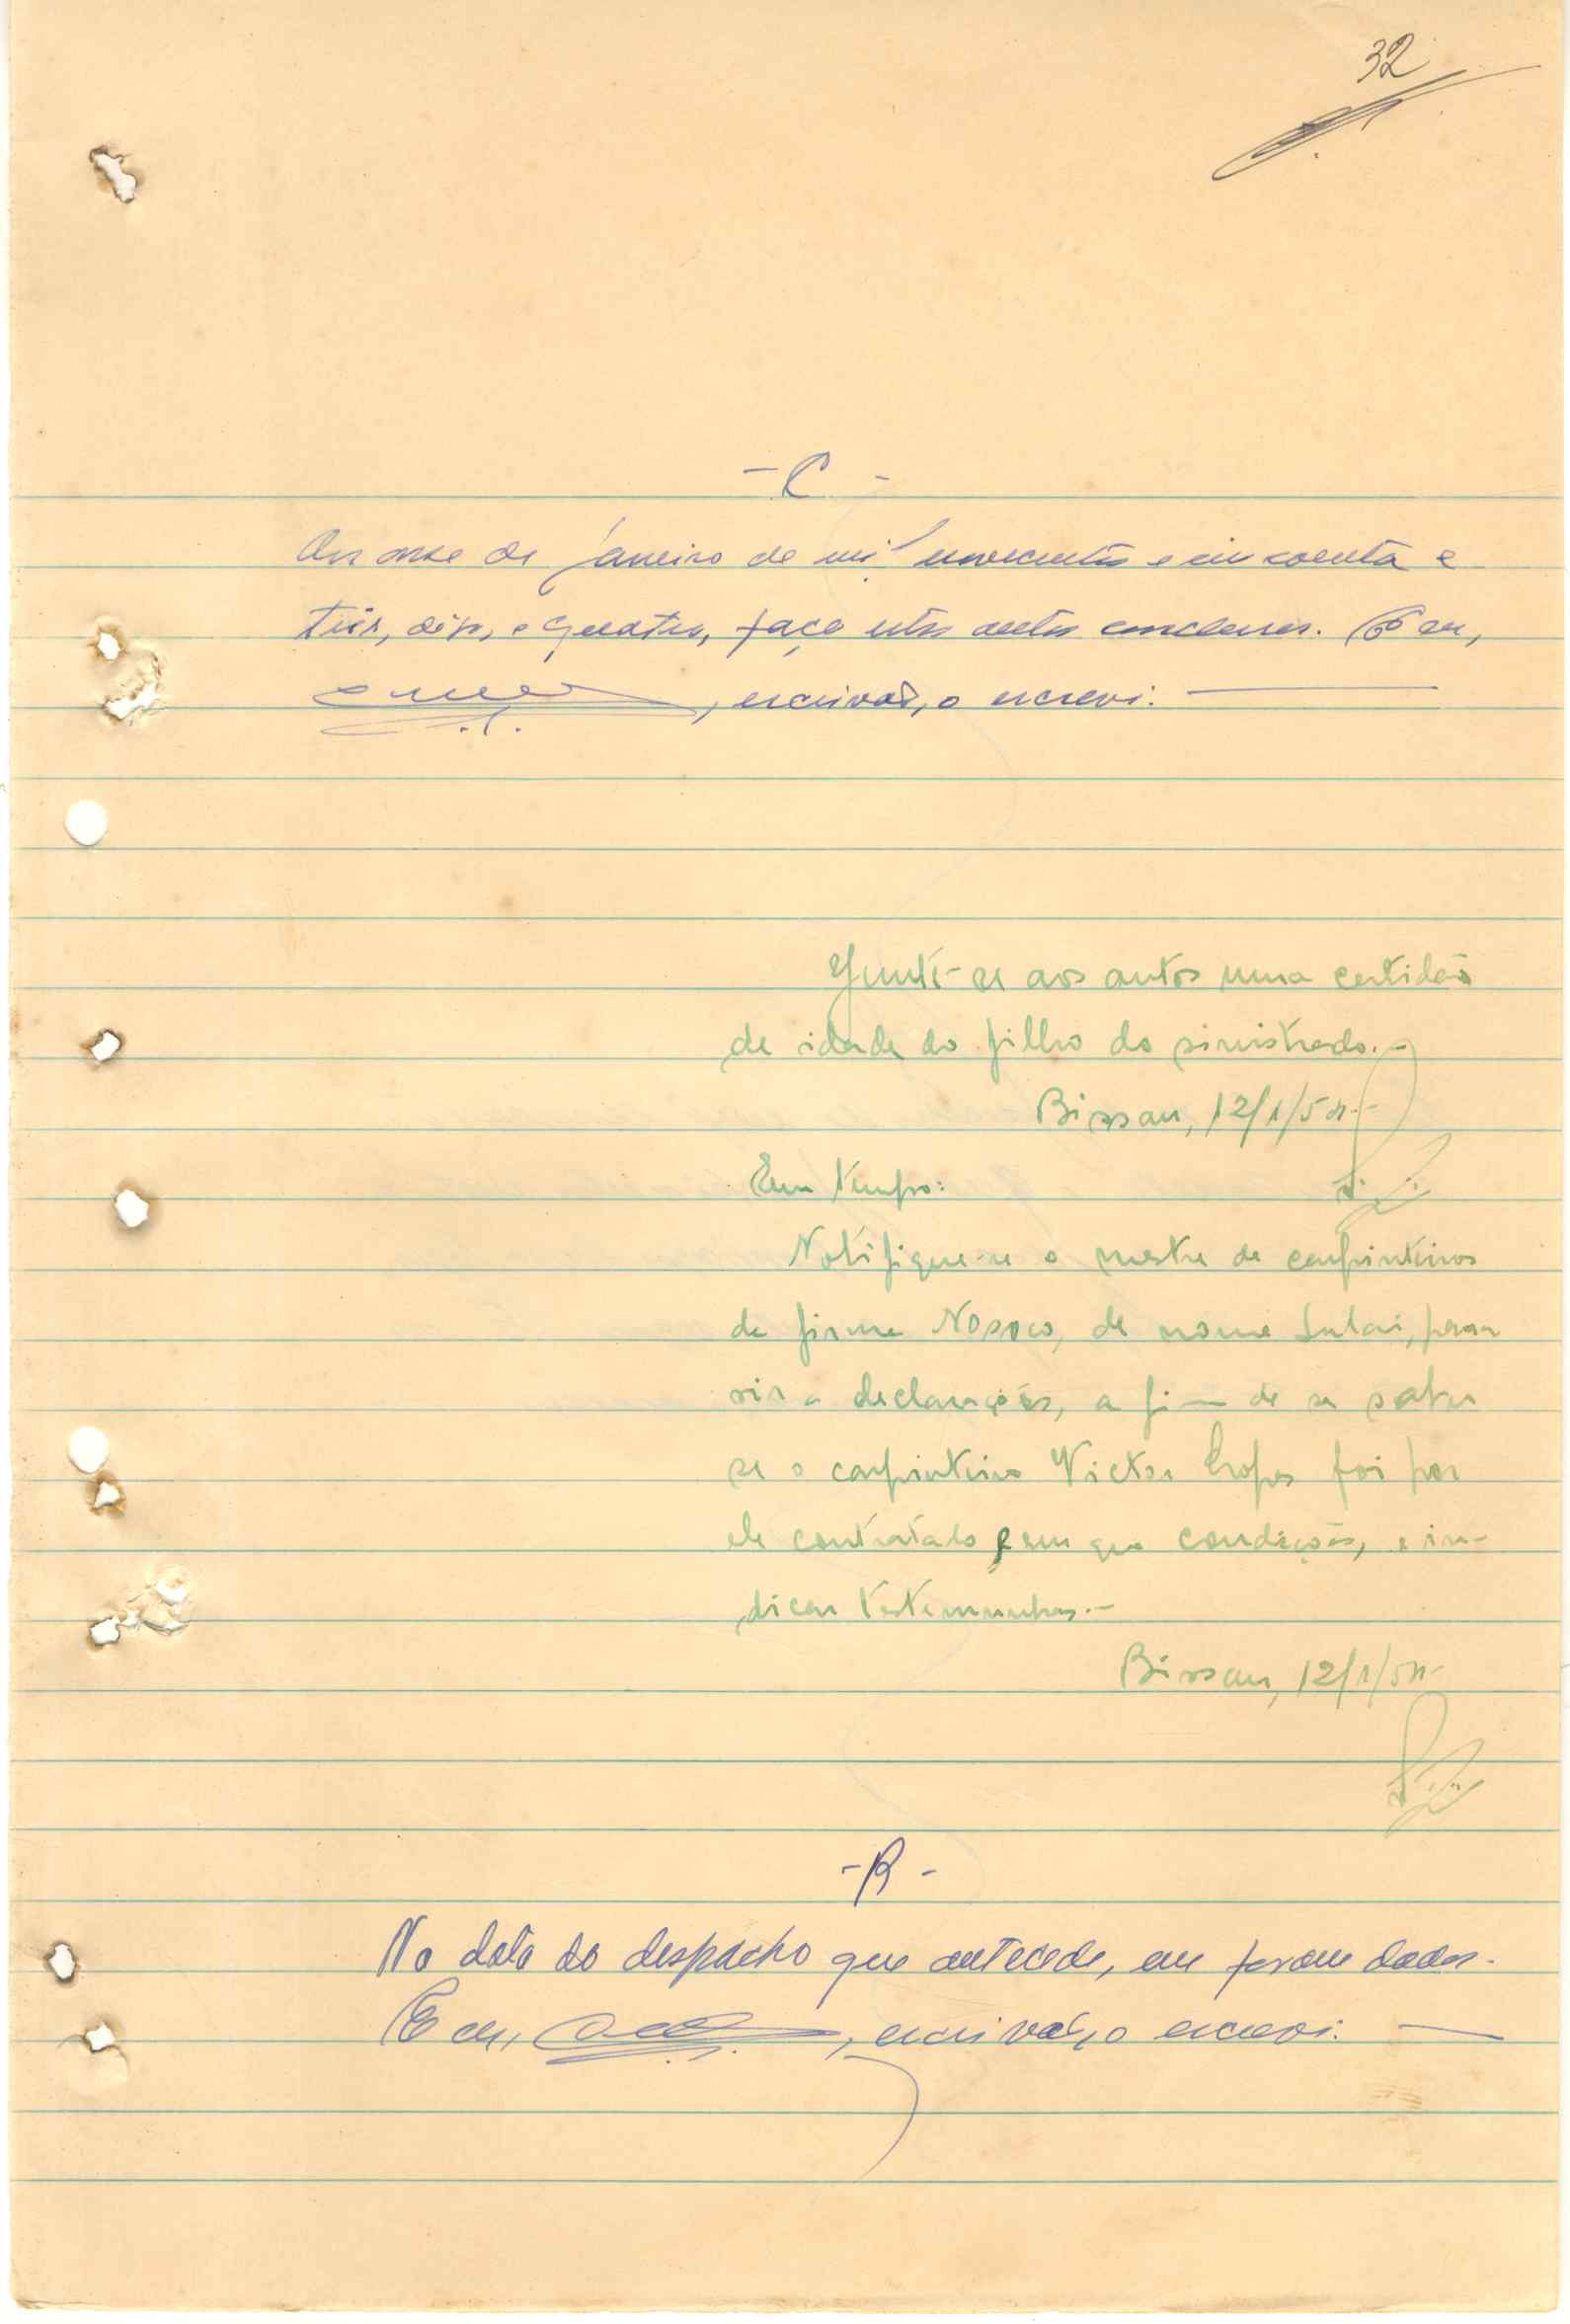 32
- C -
Aos onze de janeiro de mil novecentos e cincoenta e
três, digo, e quatro, faço estes autos conclusos. E eu,
, escrivão, o escrevi.
Junte-se aos autos uma certidão
de idade do filho do sinistrado.-
Bissau, 12/1/54.-
Em tempo:
Notifique-se o mestre de carpinteiros
da firma Nosoco, de nome Sulai, para
vir a declarações, a fim de se saber
se o carpinteiro Victor Lopes foi por
ele contratado e em que condições, e in-
dicar testemunhas.-
Bissau, 12/1/54-
- R -
Na data do despacho que antecede, me foram dados.
E eu, , escrivão, o escrevi.